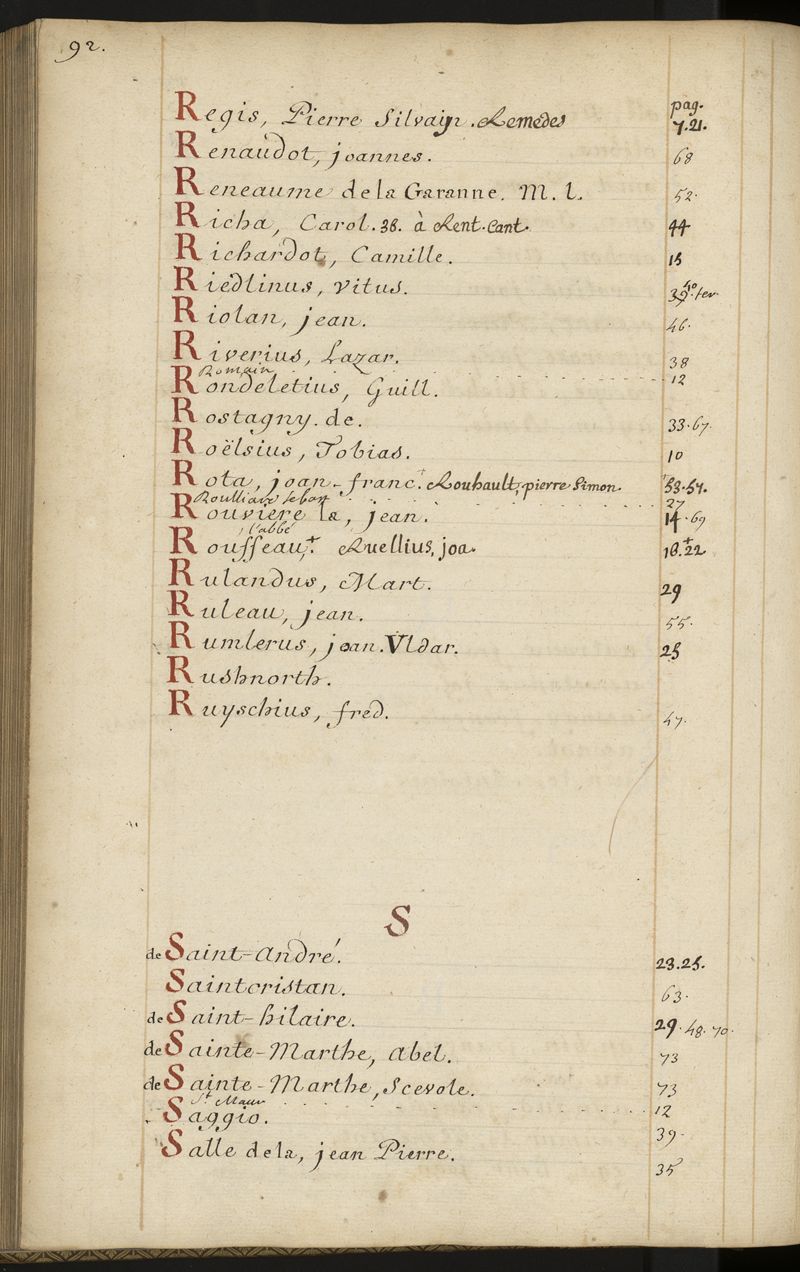 92.
pag.
Regis, Pierre Silvain. Remedes 7.21.
Renaudot, joannes. 68
Reneaume dela Garanne. M. L. 52.
Richa, Carol. 38. à Rent. Cant. 44
Richardot, Camille. 15
Riedlinus, Vitus. 39. 40. ter
Riolan, jean. 46.
Riverius, Lazar. 38
Romain 12
Rondeletius, Guill.
Rostagny. de. 33.67.
Roëlsius, Tobias. 10
Rota, joan. franc.+ Rouhault, pierre Simon. +53.57.
Roulliaux sebast 27
Rouviere la, jean. 14.69
l'abbé
Rousseau,+ Ruellius, joa. 18.+22
Rulandus, Mart. 29
Ruleau, jean. 55.
Rumlerus, joan. Vldar. 25
Rushnorth.
Ruyschius, fred. 47.
S
de Saint-André. 23.25.
Saintcristan. 63.
de Saint-hilaire. 29.48.70.
de Sainte-Marthe, Abel. 73
de Sainte-Marthe, Scevole. 73
St. Maur 12
Saggio. 39.
Salle dela, jean Pierre. 35